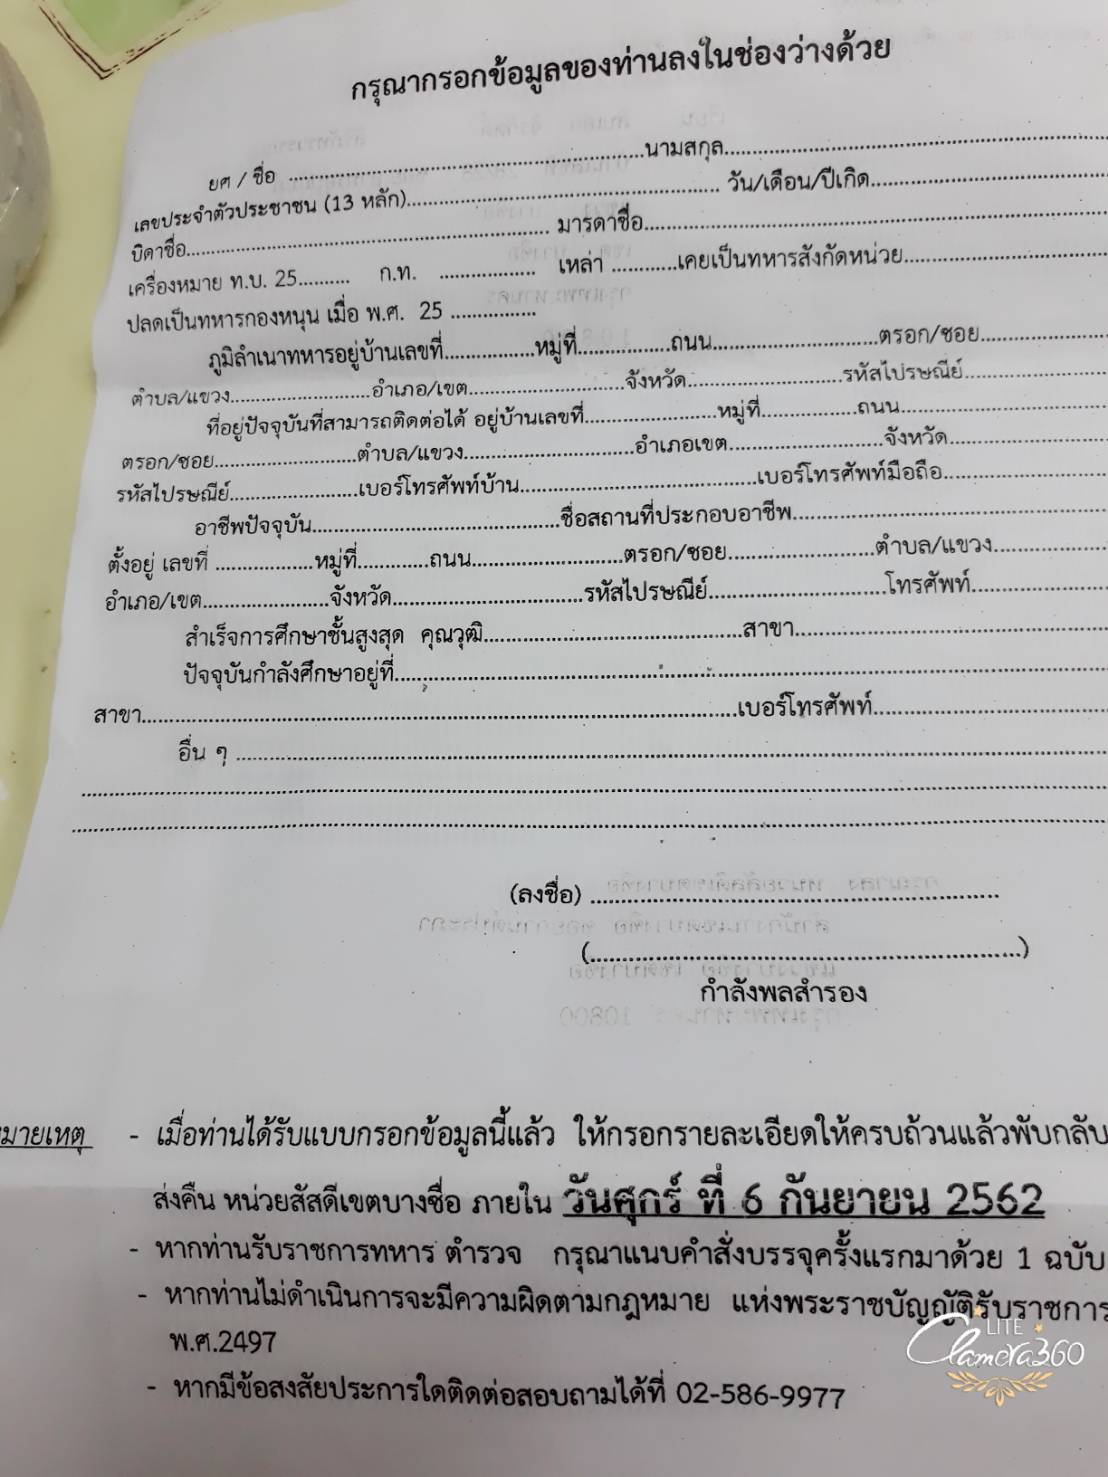 กรุณากรอกข้อมูลของท่านลงในช่องว่างด้วย
ยศ / ชื่อ ........................................................นามสกุล........................................................
เลขประจำตัวประชาชน (13 หลัก)........................................................ วัน/เดือน/ปีเกิด........................................
บิดาชื่อ........................................................ มารดาชื่อ........................................................
เครื่องหมาย ท.บ. 25.......... ก.ท. .................. เหล่า ............เคยเป็นทหารสังกัดหน่วย..............................
ปลดเป็นทหารกองหนุน เมื่อ พ.ศ. 25 ................
ภูมิลำเนาทหารอยู่บ้านเลขที่................หมู่ที่................ถนน..............................ตรอก/ซอย....................
ตำบล/แขวง........................อำเภอ/เขต............................จังหวัด............................รหัสไปรษณีย์....................
ที่อยู่ปัจจุบันที่สามารถติดต่อได้ อยู่บ้านเลขที่........................หมู่ที่..................ถนน..............................
ตรอก/ซอย..........................ตำบล/แขวง................................อำเภอเขต............................จังหวัด..........................
รหัสไปรษณีย์........................เบอร์โทรศัพท์บ้าน............................................เบอร์โทรศัพท์มือถือ..........................
อาชีพปัจจุบัน..............................................ชื่อสถานที่ประกอบอาชีพ........................................................
ตั้งอยู่ เลขที่ ..................หมู่ที่.............ถนน............................ตรอก/ซอย..........................ตำบล/แขวง....................
อำเภอ/เขต........................จังหวัด....................................รหัสไปรษณีย์................................โทรศัพท์........................
สำเร็จการศึกษาชั้นสูงสุด คุณวุฒิ................................................สาขา........................................................
ปัจจุบันกำลังศึกษาอยู่ที่................................................................................................................
สาขา................................................................................................เบอร์โทรศัพท์........................................
อื่น ๆ ................................................................................................................................
................................................................................................................................................
................................................................................................................................................
(ลงชื่อ) ........................................................................
(........................................................................)
กำลังพลสำรอง
มายเหตุ - เมื่อท่านได้รับแบบกรอกข้อมูลนี้แล้ว ให้กรอกรายละเอียดให้ครบถ้วนแล้วพับกลับ
ส่งคืน หน่วยสัสดีเขตบางซื่อ ภายใน วันศุกร์ ที่ 6 กันยายน 2562
- หากท่านรับราชการทหาร ตำรวจ กรุณาแนบคำสั่งบรรจุครั้งแรกมาด้วย 1 ฉบับ
- หากท่านไม่ดำเนินการจะมีความผิดตามกฎหมาย แห่งพระราชบัญญัติรับราชการ
พ.ศ.2497
- หากมีข้อสงสัยประการใดติดต่อสอบถามได้ที่ 02-586-9977
LITE
Camera360